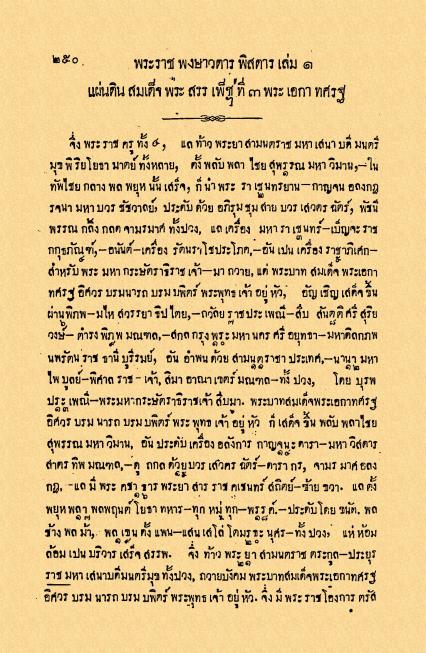 ๒๕๐
พระราช พงษาวดาร พิสดาร เล่ม ๑
แผ่นดิน สมเด็จ พระ สรร เพ็ชญ์ ที่ ๓ พระ เอกา ทศรฐ
จึ่ง พระ ราช ครู ทั้ง ๔, แล ท้าว พระยา สามนตราช มหา เสนา บดี มนตรี
มุข พิริย โยธา มาตย์ ทั้งหลาย, ตั้ง พลับ พลา ไชย สุพรรณ มหา วิมาน,-ใน
ทัพไชย กลาง พล พยุห นั้น เสร็จ, ก็ นำ พระ ราเชนทรยาน-กาญจน อลงกฎ
รจนา มหา บวร ชัชวาลย์, ประดับ ด้วย อภิรุม ชุม สาย บวร เสวตร ฉัตร์, พัชนี
พรรณ กลิ้ง กลด จามรมาศ ทั้งปวง, แล เครื่อง มหา ราเชนทร์-เบ็ญจะ ราช
กกุธภัณฑ์,-อนันต์-เครื่อง รัตนรา ไชประโภค,-อัน เปน เครื่อง ราชาภิเศก-
สำหรับ พระ มหา กระษัตราธิราช เจ้า-มา ถวาย, แด่ พระบาท สมเด็จ พระเอกา
ทศรฐ อิศวร บรมนารถ บรม บพิตร์ พระพุทธ เจ้า อยู่ หัว, อัญ เชิญ เสด็จ ขึ้น
ผ่านพิภพ-มไห สวรรยา ธิปไตย,-ถวัลย ราช ประเพณี-สืบ สันตติ ศรี สุริย
วงษ์-ดำรง พิภพ มณฑล,-สกล กรุง พระ มหา นคร ศรี อยุทธยา-มหาดิลกภพ
นพรัตน ราช ธานี บุรีรมย์, อัน อำพน ด้วย สามนตราชา ประเทศ,-นานา มหา
ไพบูลย์-พิศาล ราช-เจ้า, สีมา อาณา เขตร์ มณฑล-ทั้ง ปวง, โดย บุรพ
ประเพณี-พระมหากระษัตราธิราชเจ้า สืบมา. พระบาทสมเด็จพระเอกาทศรฐ
อิศวร บรม นารถ บรม บพิตร์ พระ พุทธ เจ้า อยู่ หัว ก็ เสด็จ ขึ้น พลับ พลาไชย
สุพรรณ มหา วิมาน, อัน ประดับ เครื่อง อลังการ กาญจนะ ดารา-มหา วิสดาร
กฎ,-แล มี พระ พระยา สาร ราช คเชนทร์ สถิตย์-ซ้าย ขวา. แล ตั้ง
พยุห พลา พลพฤนท์ โยธา ทหาร-ทุก หมู่ ทุก-พรรค์,-ประดับโดย ขนัด. พล
ช้าง พล ม้า, พล เขน ตั้ง แพน-แสน เสโล่ โตมระ นุศร-ทั้ง ปวง, แห่ ห้อม
ล้อม เปน บริวาร เสร็จ สรรพ. จึ่ง ท้าว พระยา สามนตราช ตระกูล-ประยุร
ราช มหา เสนาบดีมนตรีมุขทั้งปวง, ถวายบังคม พระบาทสมเด็จพระเอกาทศรฐ
อิศวร บรม นารถ บรม บพิตร์ พระพุทธ เจ้า อยู่ หัว. จึ่ง มี พระ ราช โองการ ตรัส